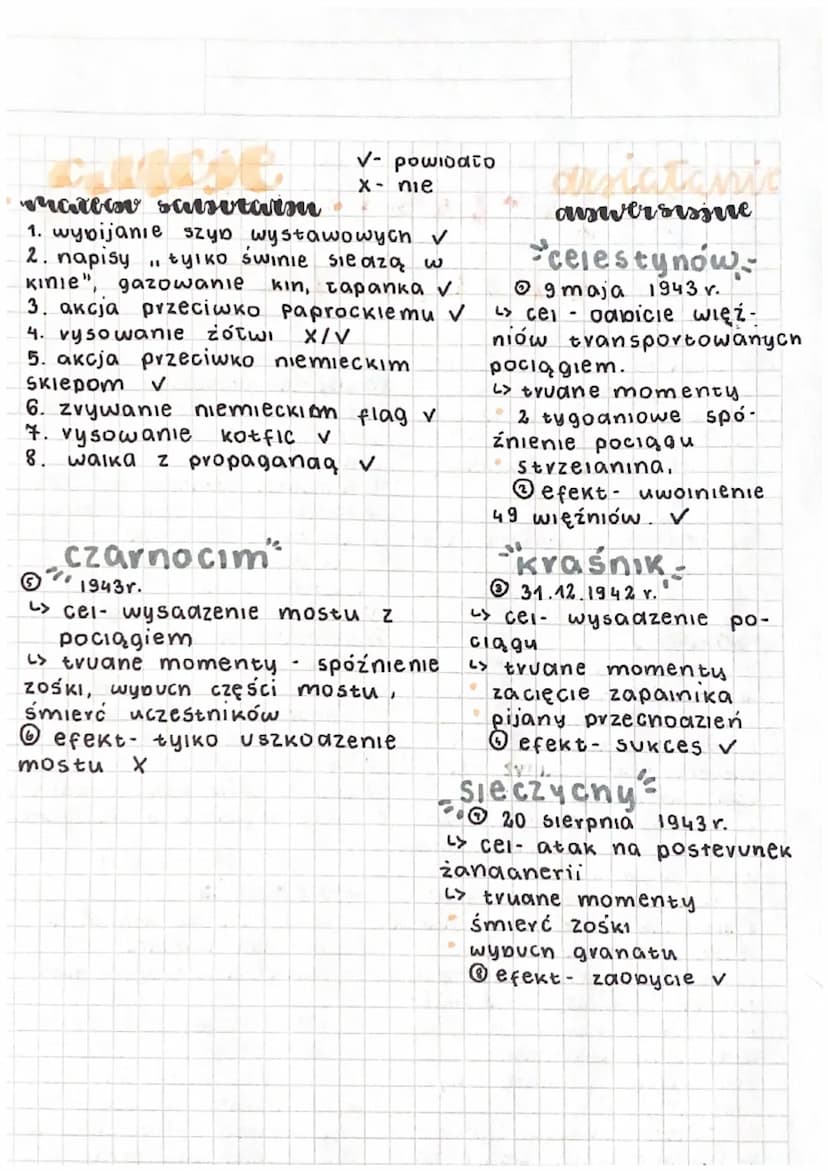 akcje
małego sabotażu
√- powiodło
x- nie
1. wybijanie szyb wystawowych √
2. napisy „tylko świnie siedzą w
kinie", gazowanie kin, łapanka √
3. akcja przeciwko paprockiemu √
4. rysowanie żółwi x/√
5. akcja przeciwko niemieckim
sklepom √
6. zrywanie niemieckich flag √
7. rysowanie kotfic √
8. walka z propagandą √
działania
dywersyjne
celestynów
① 9 maja 1943 r.
↳ cel - odbicie więź-
niów transportowanych
pociągiem.
↳ trudne momenty
• 2 tygodniowe spó-
źnienie pociągu
• strzelanina.
② efekt - uwolnienie
49 więźniów. √
kraśnik
③ 31.12.1942 r.
↳ cel- wysadzenie po-
ciągu
↳ trudne momenty
• zacięcie zapalnika
• pijany przechodzień
④ efekt- sukces √
czarnocim
⑤ 1943r.
↳ cel- wysadzenie mostu z
pociągiem
↳ trudne momenty - spóźnienie
zośki, wybuch części mostu,
śmierć uczestników
⑥ efekt- tylko uszkodzenie
mostu x
sieczychy
⑦ 20 sierpnia 1943 r.
↳ cel- atak na posterunek
żandanerii
↳ trudne momenty
• śmierć zośki
• wybuch granatu
⑧ efekt- zdobycie √